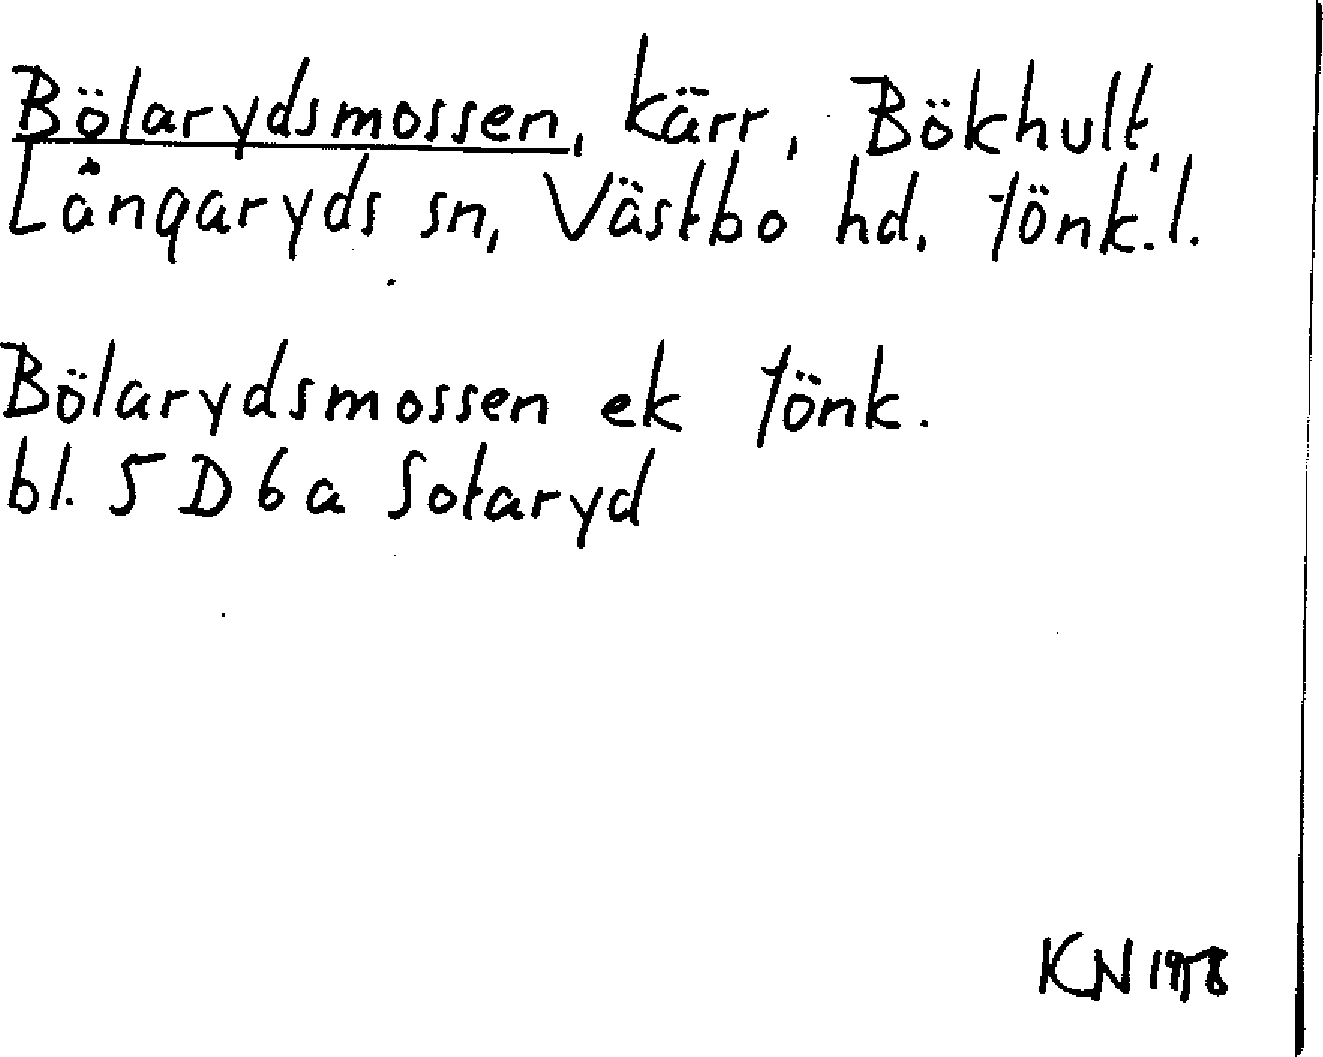 Bölarydsmossen, kärr, Bökhult,
Långaryds sn, Västbo hd. Jönk.l.
Bölarydsmossen ek Jönk.
bl. 5 D 6 a Sotaryd
KN 1958